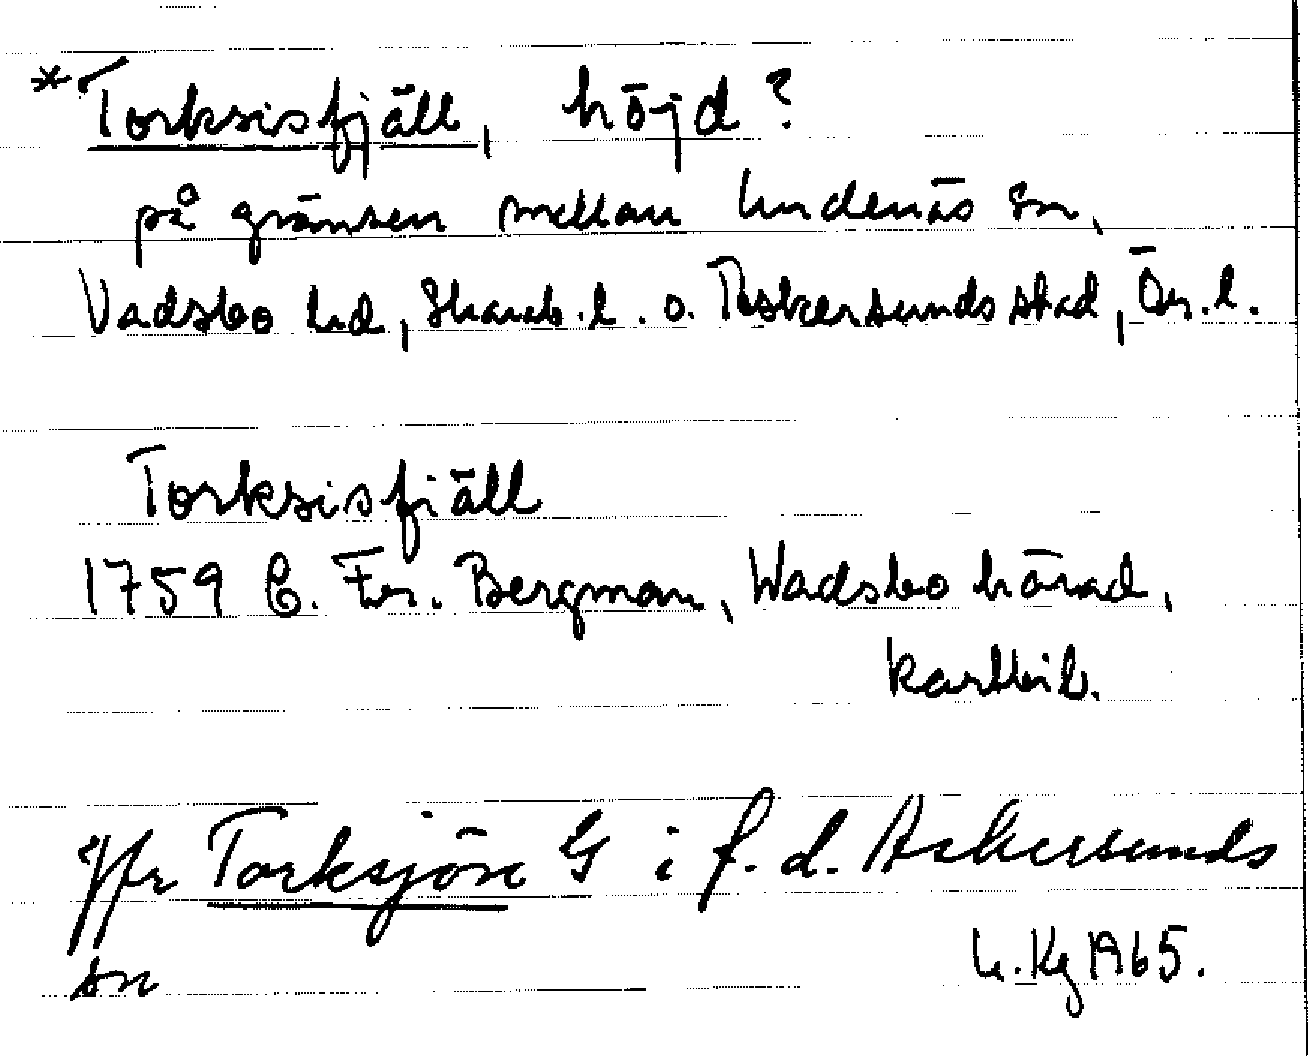 *Torksisfjäll, höjd?
på gränsen mellan Undenäs sn,
Vadsbo hd, Skarab. l. o. Askersunds stad, Ör. l.
Torksisfjäll
1759 C. Fr. Bergman, Wadsbo härad,
kartbil.
Jfr Torksjön G i f. d. Askersunds
sn
h. Kg 1965.